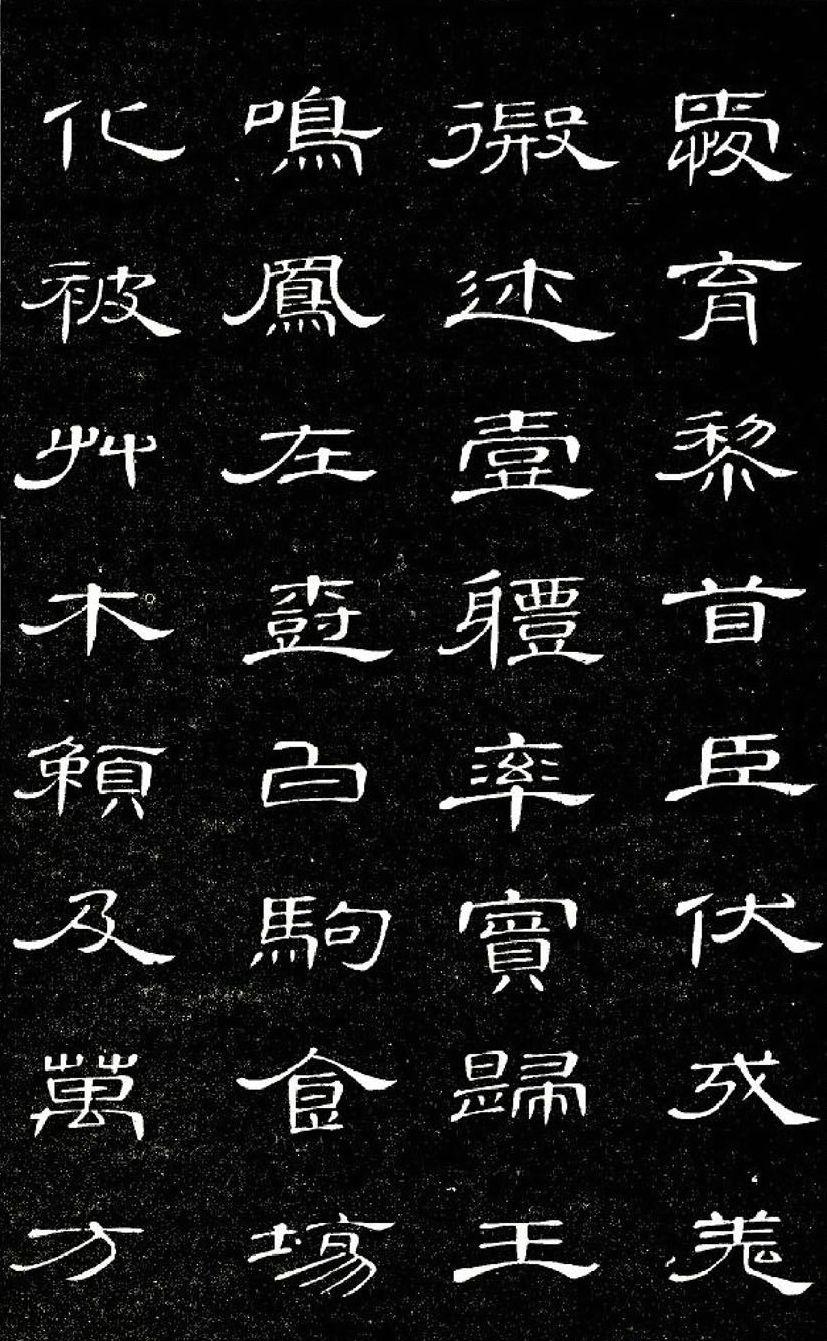 愛育黎首臣伏戎羌
徦迩壹軆率賓歸王
鳴鳳在樹白駒食場
化被艸木賴及萬方